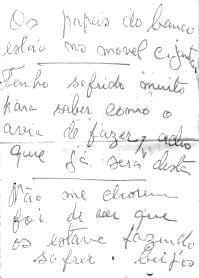 Os papeis do banco
estão no movel
Tenho sofrido muito
para saber como o
avia de fazer, acho
que já será desta
Não me chorem
foi de ver que
os estava fazendo
sofrer. beijos